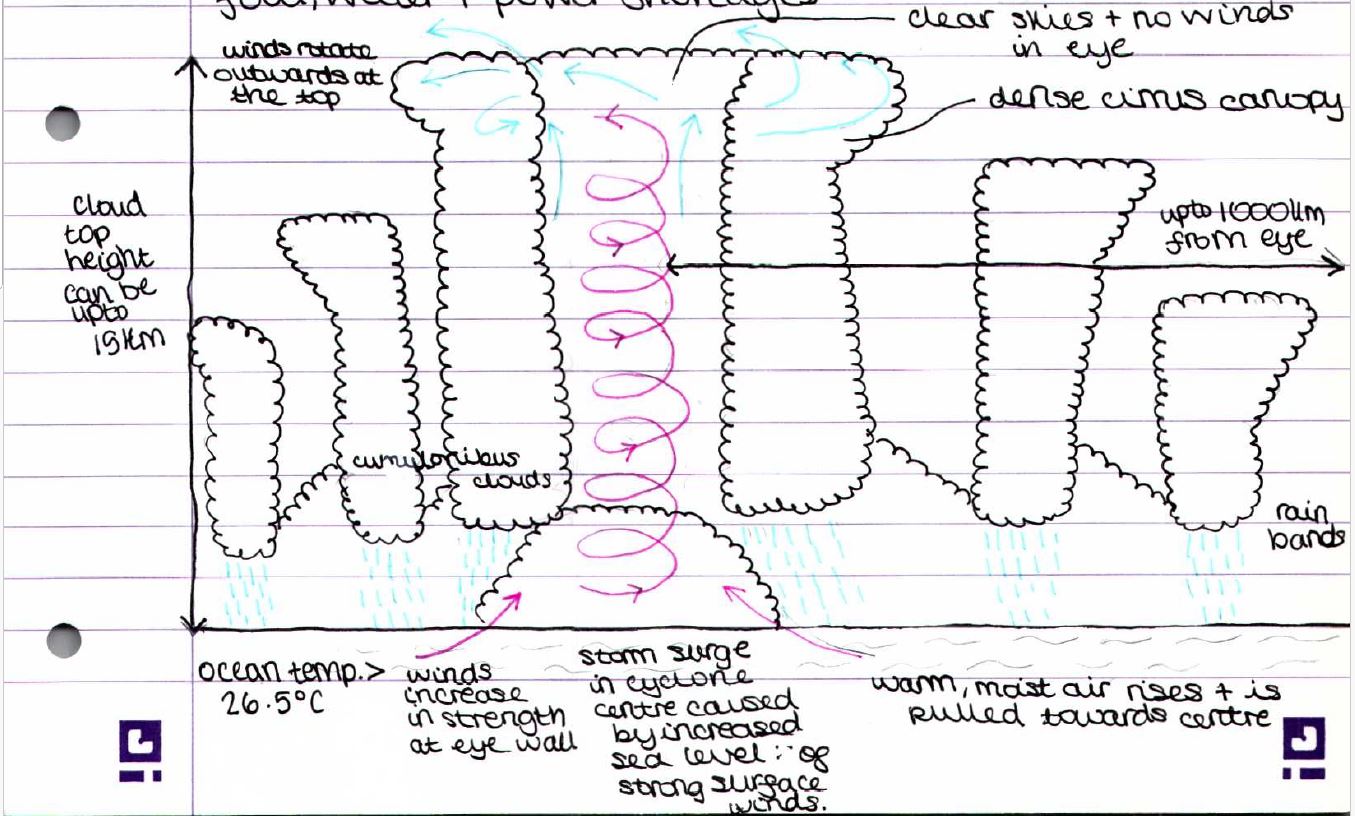 food, water + power shortages
clear skies + no winds
in eye
winds rotate
outwards at
the top
dense cirrus canopy
cloud
top
height
can be
upto
15km
upto 1000km
from eye
cumulonibus
clouds
rain
bands
ocean temp. >
26.5°C
winds
increase
in strength
at eye wall
storm surge
in cyclone
centre caused
by increased
sea level ∵ of
strong surface
winds.
warm, moist air rises + is
pulled towards centre